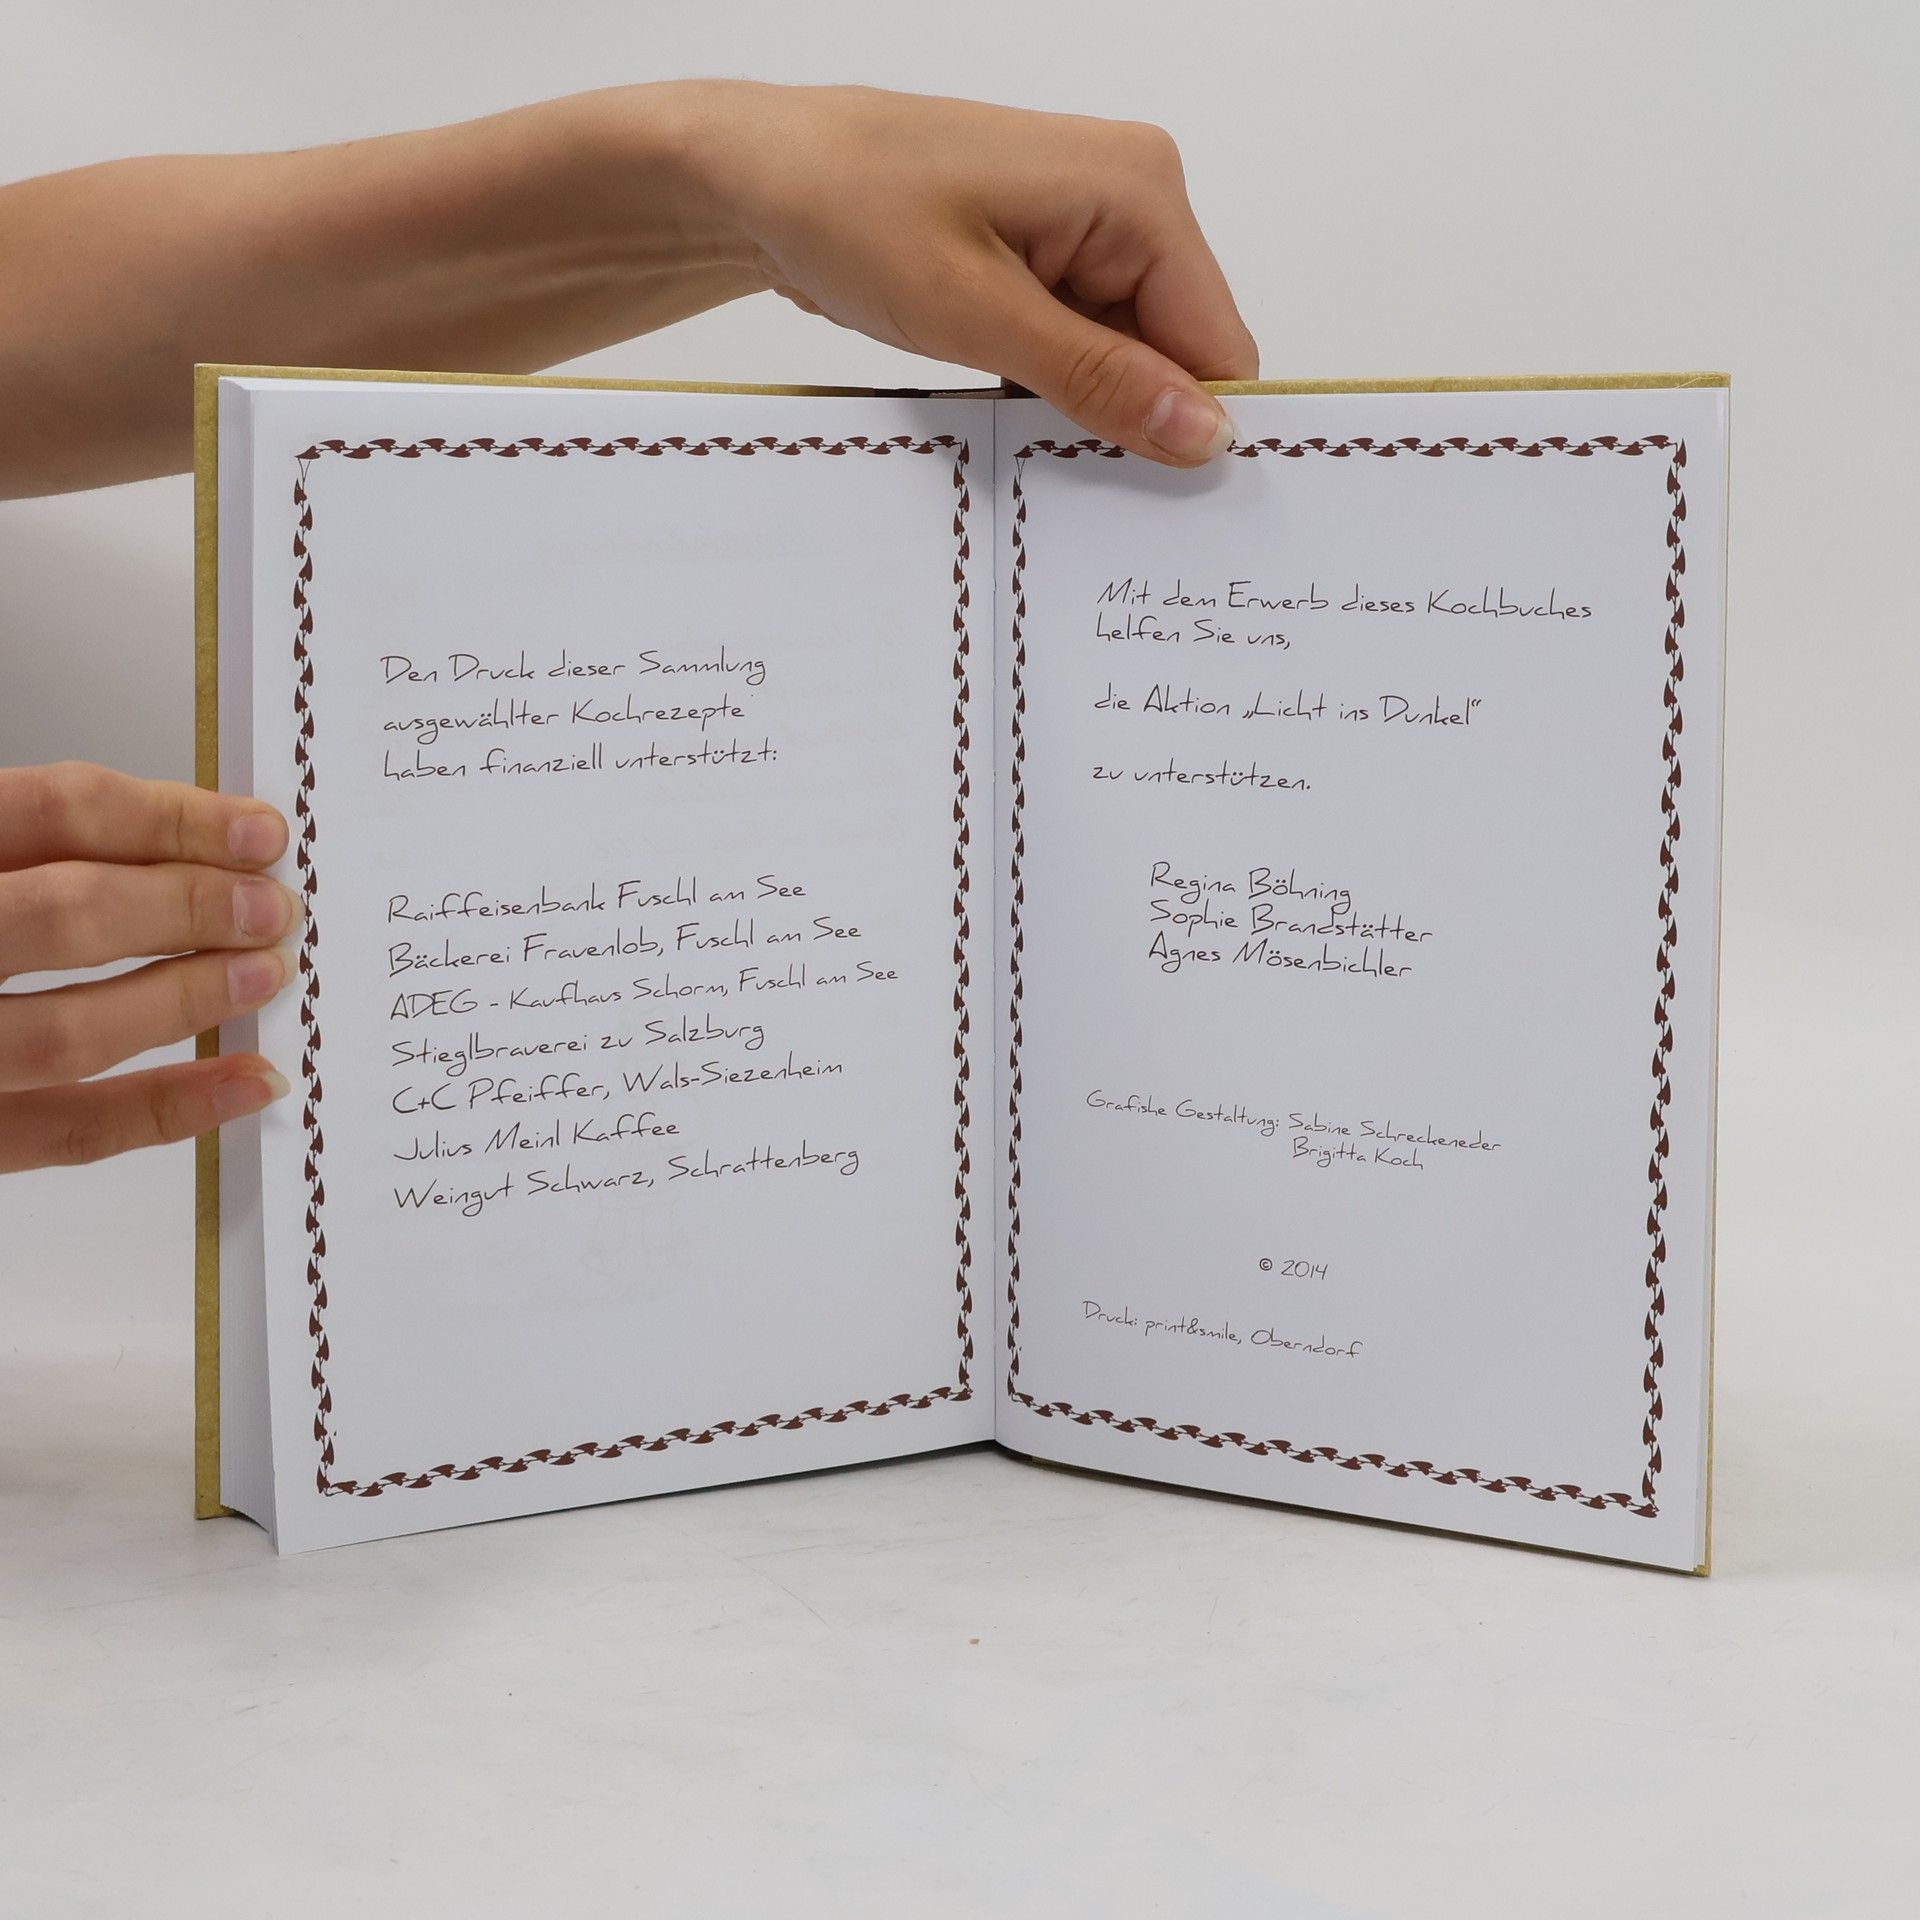 Den Druck dieser Sammlung
ausgewählter Kochrezepte
haben finanziell unterstützt:
Raiffeisenbank Fuschl am See
Bäckerei Frauenlob, Fuschl am See
ADEG - Kaufhaus Schorm, Fuschl am See
Stieglbrauerei zu Salzburg
C+C Pfeiffer, Wals-Siezenheim
Julius Meinl Kaffee
Weingut Schwarz, Schrattenberg
Mit dem Erwerb dieses Kochbuches
helfen Sie uns,
die Aktion „Licht ins Dunkel“
zu unterstützen.
Regina Böhning
Sophie Brandstätter
Agnes Mösenbichler
Grafishe Gestaltung: Sabine Schreckeneder
Brigitta Koch
© 2014
Druck: print&smile, Oberndorf